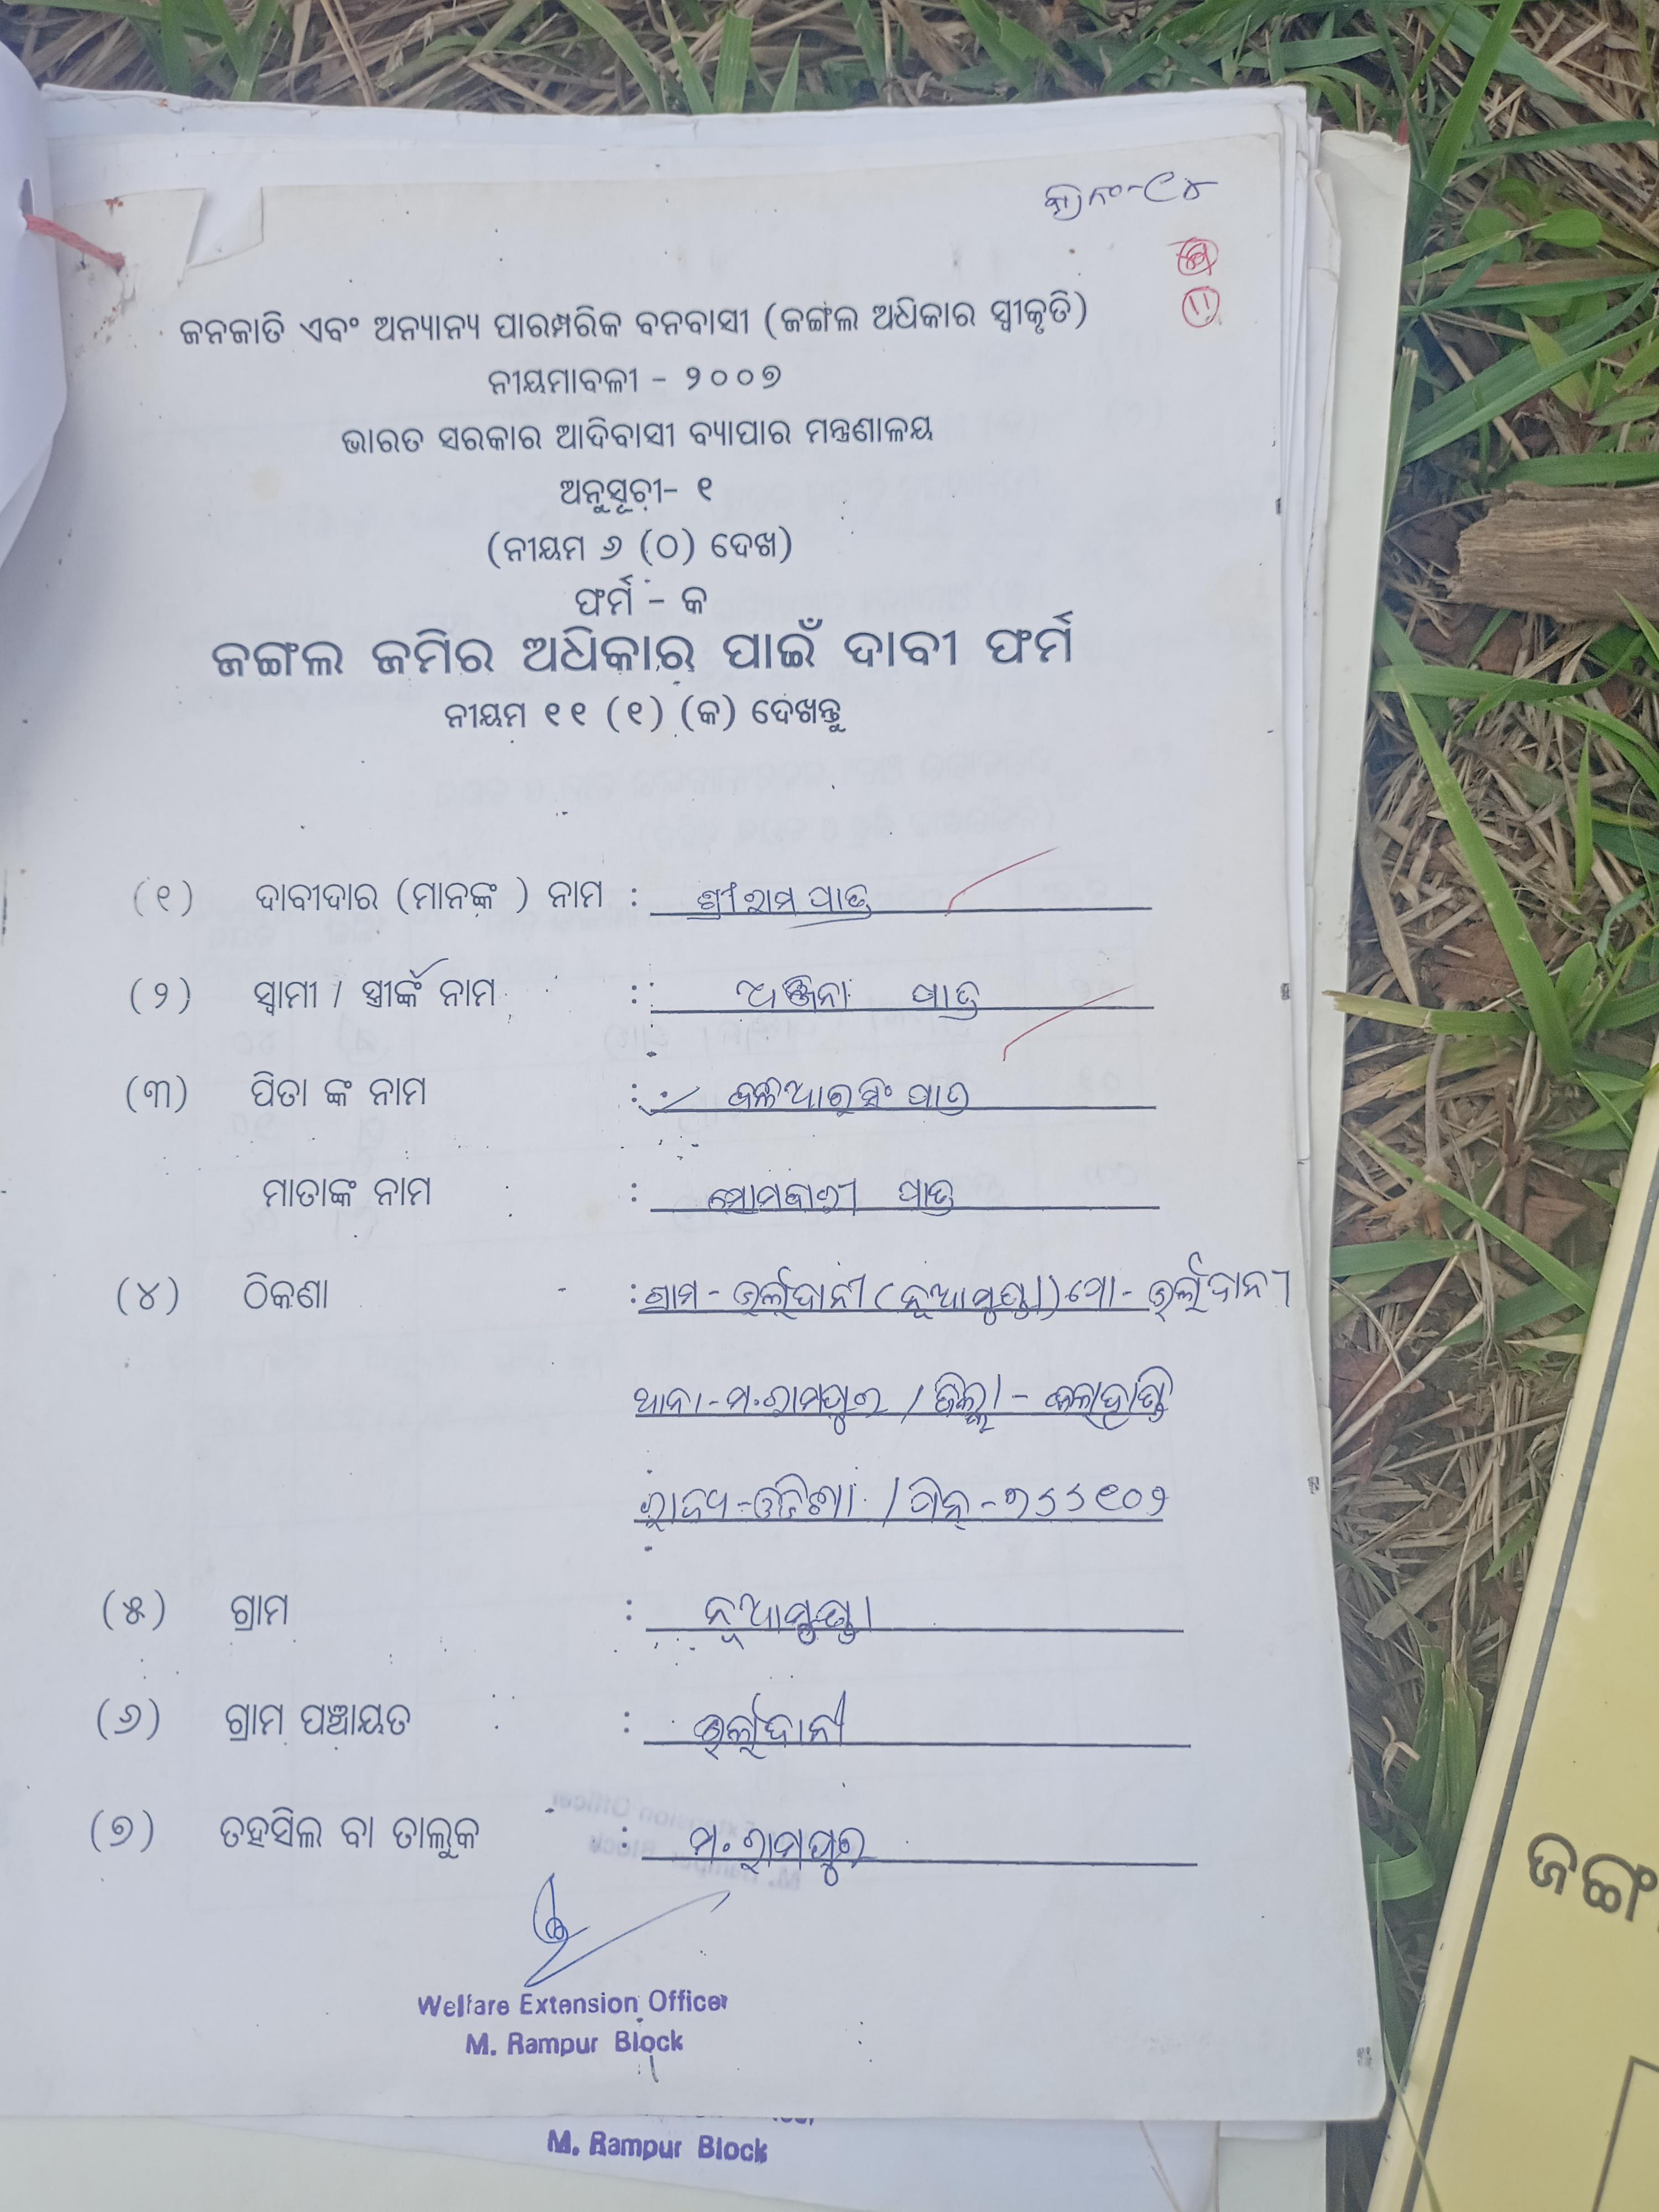 କ୍ର.ନଂ-୯୪
୧୧
ଜନଜାତି ଏବଂ ଅନ୍ୟାନ୍ୟ ପାରମ୍ପରିକ ବନବାସୀ (ଜଙ୍ଗଲ ଅଧିକାର ସ୍ୱୀକୃତି)
ନୀୟମାବଳୀ - ୨୦୦୭
ଭାରତ ସରକାର ଆଦିବାସୀ ବ୍ୟାପାର ମନ୍ତ୍ରଣାଳୟ
ଅନୁସୂଚୀ- ୧
(ନୀୟମ ୬ (ଠ) ଦେଖ)
ଫର୍ମ - କ
ଜଙ୍ଗଲ ଜମିର ଅଧିକାର ପାଇଁ ଦାବୀ ଫର୍ମ
ନୀୟମ ୧୧ (୧) (କ) ଦେଖନ୍ତୁ
(୧) ଦାବୀଦାର (ମାନଙ୍କ ) ନାମ : ଶ୍ରୀରାମ ପାତ୍ର
(୨) ସ୍ୱାମୀ / ସ୍ତ୍ରୀଙ୍କ ନାମ : ଅଞ୍ଜନା ପାତ୍ର
(୩) ପିତା ଙ୍କ ନାମ : ବଳିଆରସିଂ ପାତ୍ର
ମାତାଙ୍କ ନାମ : ସୋମବାରୀ ପାତ୍ର
(୪) ଠିକଣା : ଗ୍ରାମ - ଉର୍ଲାଦାନୀ (ନୂଆମୁଣ୍ଡା) ପୋ - ଉର୍ଲାଦାନୀ
ଥାନା - ମ.ରାମପୁର / ଜିଲ୍ଲା - କଳାହାଣ୍ଡି
ରାଜ୍ୟ - ଓଡିଶା / ପିନ୍ - ୭୬୬୧୦୨
(୫) ଗ୍ରାମ : ନୂଆମୁଣ୍ଡା
(୬) ଗ୍ରାମ ପଞ୍ଚାୟତ : ଉର୍ଲାଦାନୀ
(୭) ତହସିଲ ବା ତାଲୁକ : ମ. ରାମପୁର
Welfare Extension Officer
M. Rampur Block
M. Rampur Block